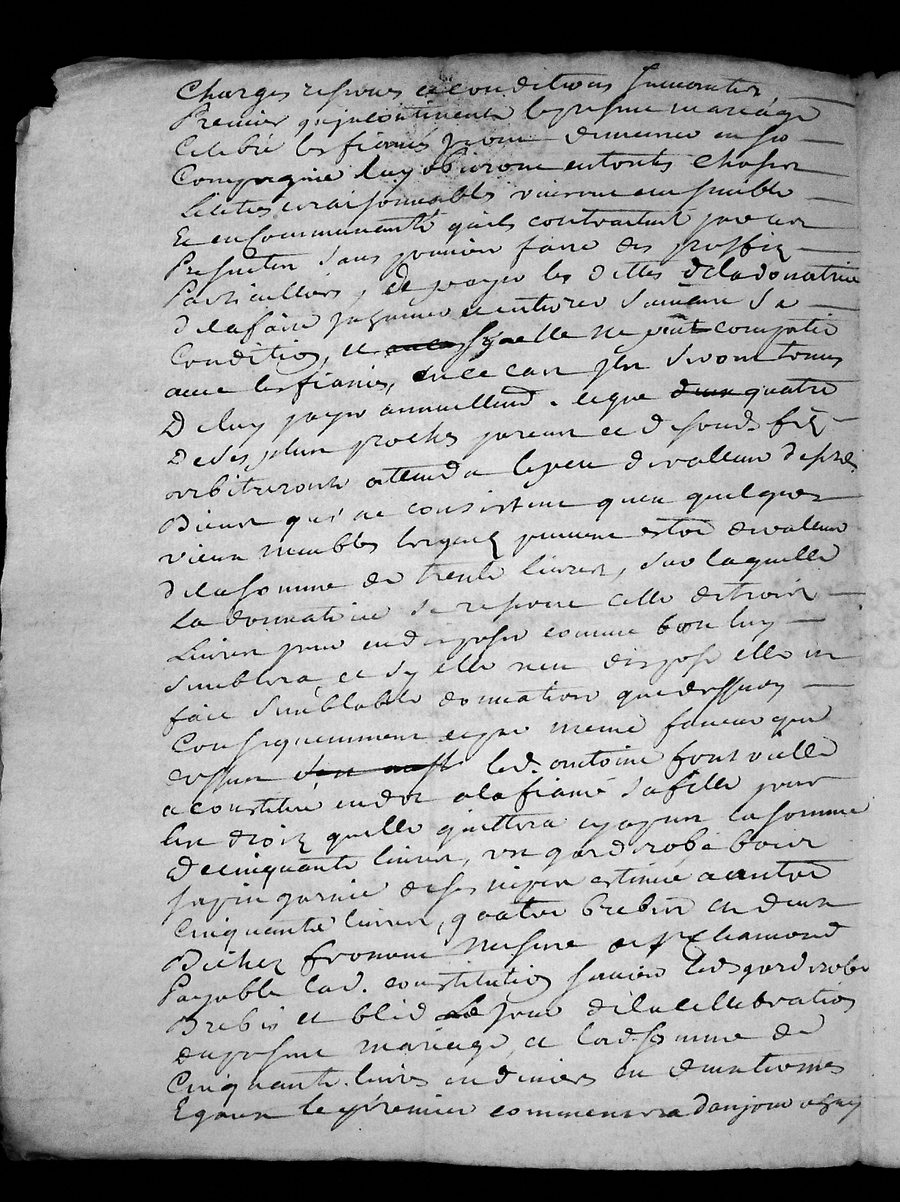 Charges reserves et conditions suivantes
Premier qu'incontinent le present mariage
Celebré les fiancés iront demeurer en sa
Compagnie luy obeiront en toutes choses
Licites et raisonnables vivront ensemble
Et en Communauté qu'ils contractent pour
sans pouvoir faire des proffits
Particulliers, et payer les dettes de la donatrice
de la faire et enterrer suivant sa
Condition, et sy elle ne peut compatir
avec les fiancés, en ce cas ils seront tenus
De luy payer annuellement ce que quatre
De ses plus proches parens et de fiez
arbitreront attendu le peu de valleur desdits
Biens qui ne consistent qu'en quelques
vieux meubles lesquels peuvent estre de valleur
de la somme de trente livres, sur laquelle
La donnatrice se reserve celle de trois
Livres pour en disposer comme bon luy
semblera et sy elle n'en dispose elle en
fait semblable donnation que dessus
Consequemment et que meme faveur que
dessus led. antoine fontvielle
a constitué en dot a la fiancé sa fille pour
les droits quelle quittera cy apres la somme
De cinquante livres, un garderobe bois
sapin garnie de ses nipes estimée a autre
Cinquante livres, quatre brebis et deux
Bichez froment mesure de St Chamond
Payable lad. constitution scavoir led. garderobe
Brebis et bled le jour de la cellebration
du present mariage, et lad. somme de
Cinquante livres en deniers en deux termes
Egaux le premier commencera d'anjourdhuy